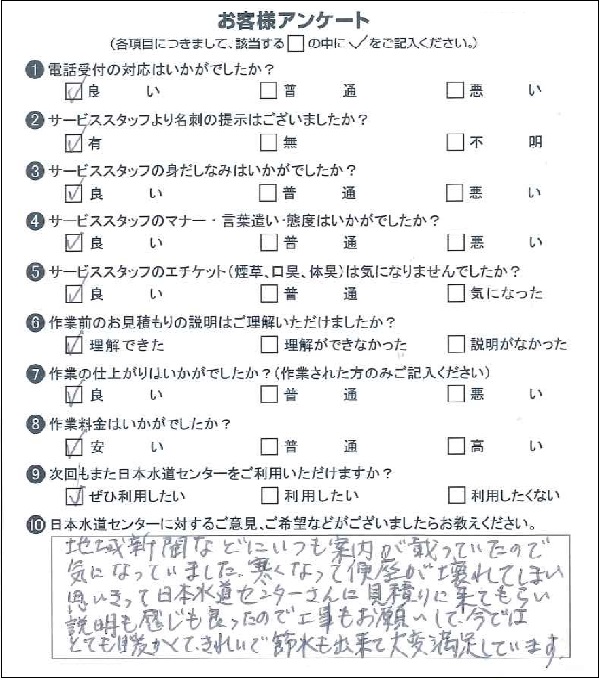 お客様アンケート
(各項目につきまして、該当する□の中に✓をご記入ください。)
❶電話受付の対応はいかがでしたか？
☑良い □普通 □悪い
❷サービススタッフより名刺の提示はございましたか？
☑有 □無 □不明
❸サービススタッフの身だしなみはいかがでしたか？
☑良い □普通 □悪い
❹サービススタッフのマナー・言葉遣い・態度はいかがでしたか？
☑良い □普通 □悪い
❺サービススタッフのエチケット(煙草、口臭、体臭)は気になりませんでしたか？
☑良い □普通 □気になった
❻作業前のお見積もりの説明はご理解いただけましたか？
☑理解できた □理解ができなかった □説明がなかった
❼作業の仕上がりはいかがでしたか？(作業された方のみご記入ください)
☑良い □普通 □悪い
❽作業料金はいかがでしたか？
☑安い □普通 □高い
❾次回もまた日本水道センターをご利用いただけますか？
☑ぜひ利用したい □利用したい □利用したくない
❿日本水道センターに対するご意見、ご希望などがございましたらお教えください。
地域新聞などにいつも案内が載っていたので
気になっていました。寒くなって便座が壊れてしまい
思いきって日本水道センターさんに見積りに来てもらい
説明も感じも良ったので工事もお願いして今では
とても暖かくて、きれいで節水も出来て大変満足しています。